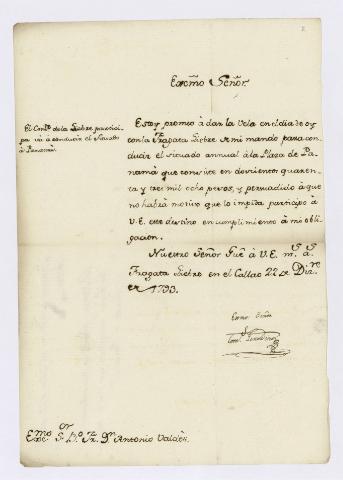 Exc͞mo Señor
El Com.te de la Liebre participa
pa va á conducir el Situado
á Panamá.
Estoy promto à dar la Vela en el dia de oy
con la Fragata Liebre de mi mando para con
ducir el situado annual à la Plaza de Pa
namá que consiste en doscientos quaren
ta y tres mil ocho pesos, y persuadido à que
no habrá motivo que lo impida participo à
V.E. este destino en cumplimiento à mi obli
gacion.
Nuestro Señor Gue. à V.E. m.s a.s
Fragata Liebre en el Callao 22 de Diz.re
de 1793.
Exmo Señor
Exc.mo S.or B.o Fr. D.n Antonio Valdès.